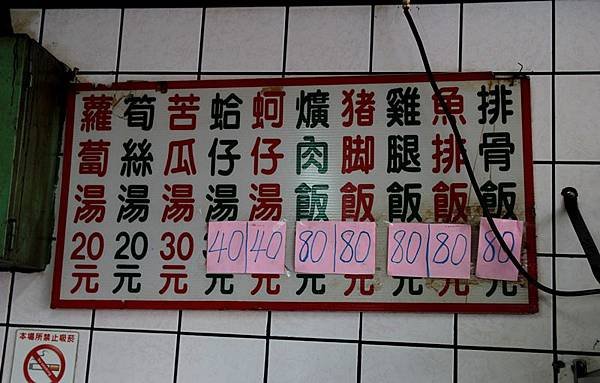 排骨飯80元
魚排飯80元
雞腿飯80元
猪脚飯80元
爌肉飯80元
蚵仔湯40元
蛤仔湯40元
苦瓜湯30元
筍絲湯20元
蘿蔔湯20元
本場所禁止吸菸